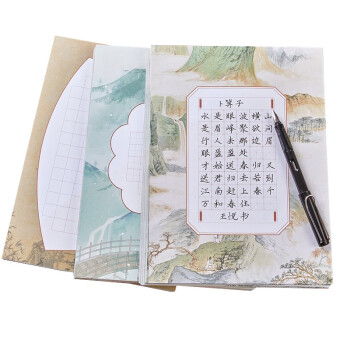 卜算子
水是眼波横山
是眉峰聚欲问
行人去那边眉
眼盈盈处
才始送春归又
送君归去若到
江南赶上春千
万和春住
王悦书